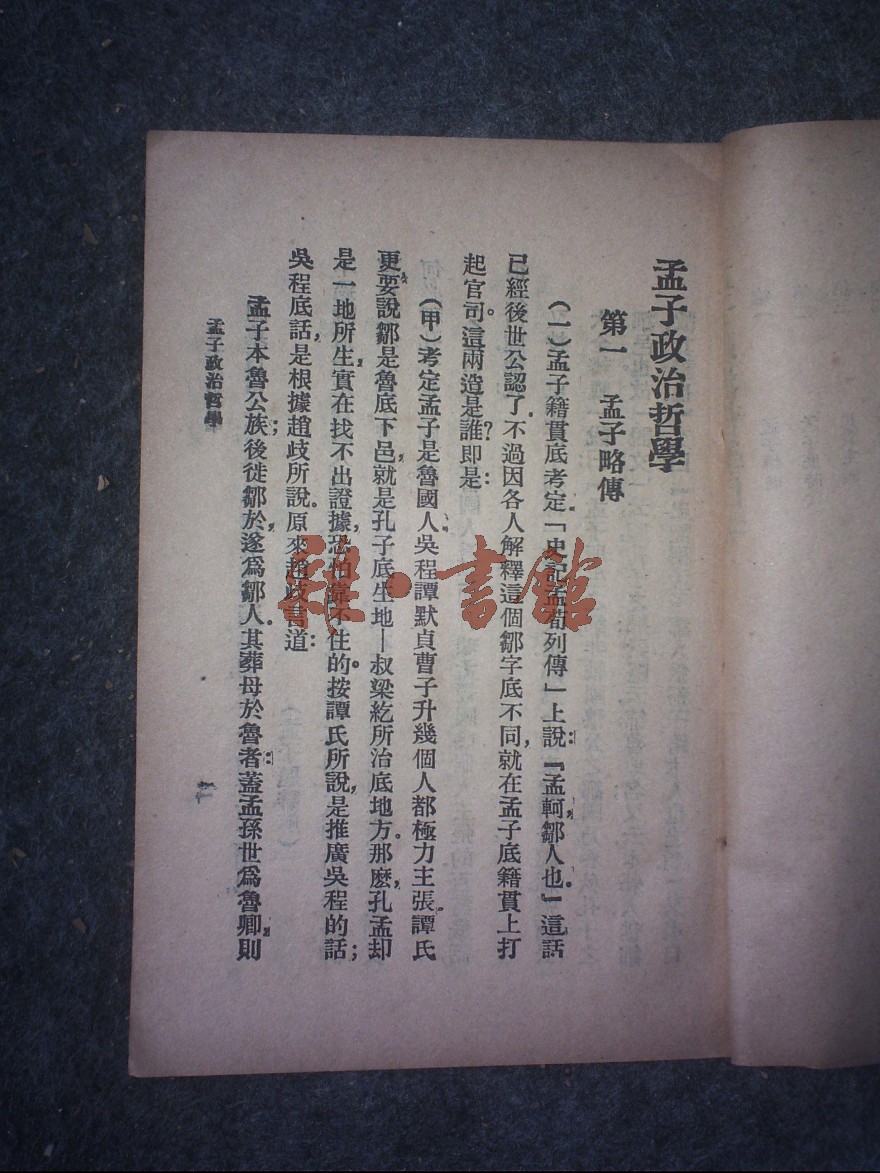 孟子政治哲學
第一 孟子略傳
(一)孟子籍貫底考定。「史記孟荀列傳」上說:『孟軻,鄒人也。』這話
已經後世公認了。不過因各人解釋這個鄒字底不同,就在孟子底籍貫上打
起官司。這兩造是誰?即是:
(甲)考定孟子是魯國人。吳程譚默貞曹子升幾個人都極力主張。譚氏
更要說鄒是魯底下邑,就是孔子底生地—叔梁紇所治底地方。那麽,孔孟却
是一地所生,實在找不出證據,恐怕靠不住的。按譚氏所說,是推廣吳程的話;
吳程底話,是根據趙歧所說。原來趙歧書道:
孟子本魯公族;後徙鄒於,遂爲鄒人。其葬母於魯者:蓋孟孫世爲魯卿,則
孟子政治哲學
雜·書館